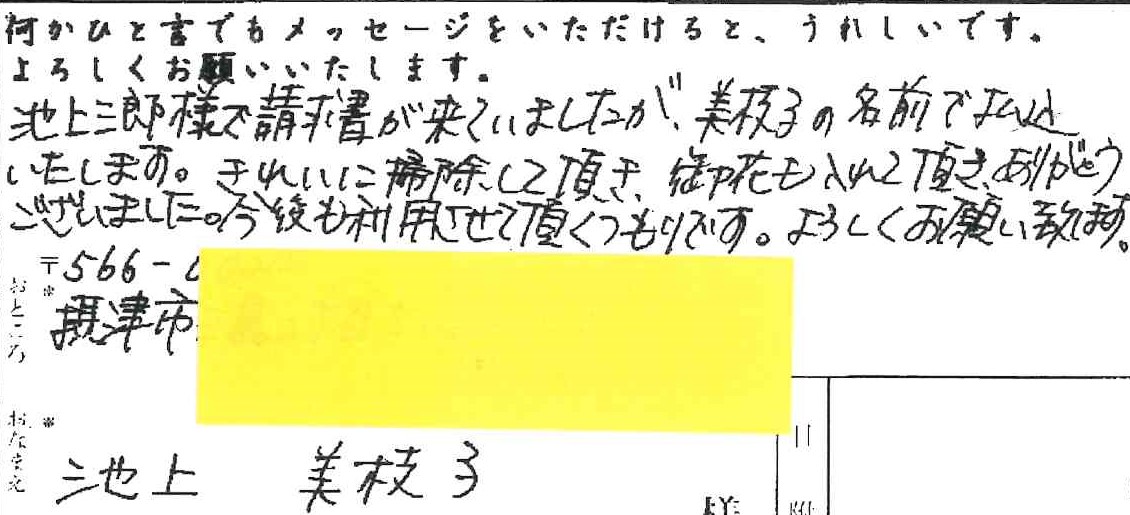 何かひと言でもメッセージをいただけると、うれしいです。
よろしくお願いいたします。
池上三郎様で請求書が来ていましたが、美枝子の名前で払込
いたします。きれいに掃除して頂き、御花も入れて頂き、ありがとう
ございました。今後も利用させて頂くつもりです。よろしくお願い致します。
〒566-0
おところ※
摂津市
おなまえ※
池上 美枝子
様
日